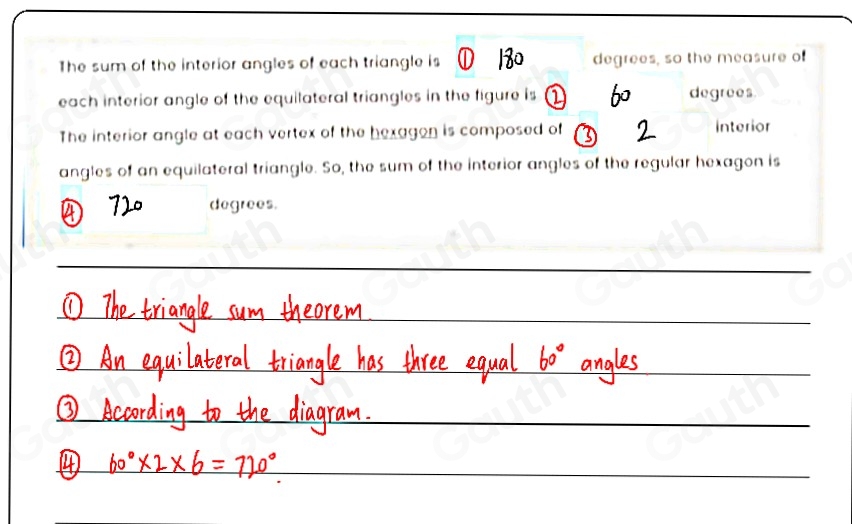 The sum of the interior angles of each triangle is ① 180 degrees, so the measure of
each interior angle of the equilateral triangles in the figure is ② 60 degrees.
The interior angle at each vertex of the hexagon is composed of ③ 2 interior
angles of an equilateral triangle. So, the sum of the interior angles of the regular hexagon is
④ 720 degrees.
① The triangle sum theorem.
② An equilateral triangle has three equal 60° angles.
③ According to the diagram.
④ 60° × 2 × 6 = 720°.
Gauth